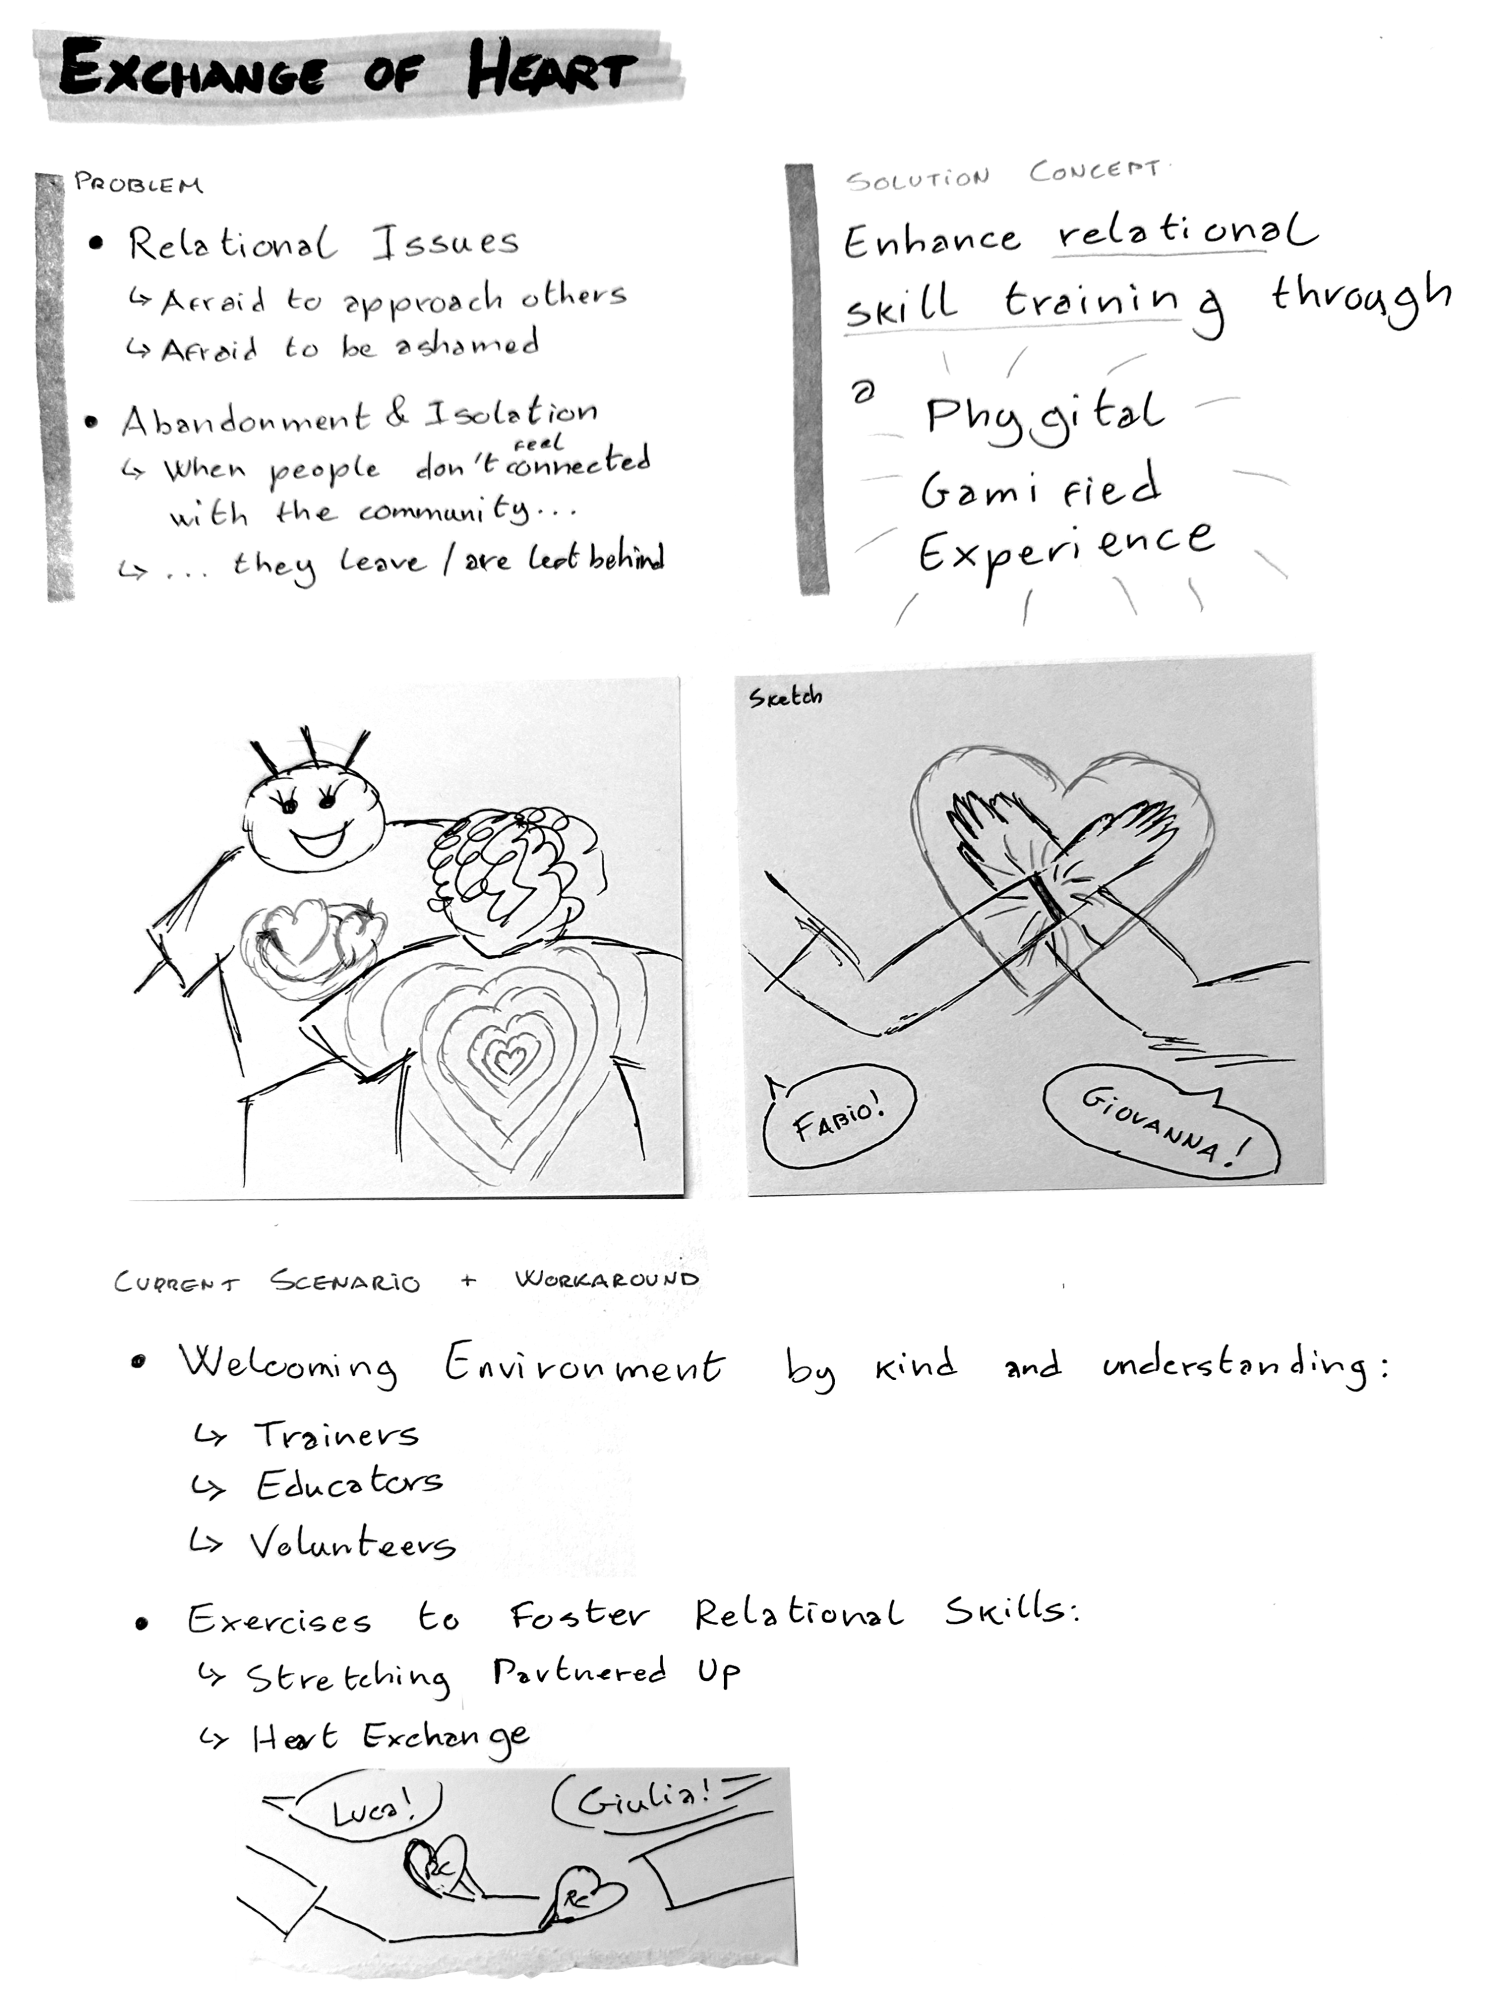 EXCHANGE OF HEART
PROBLEM
• Relational Issues
↳ Afraid to approach others
↳ Afraid to be ashamed
• Abandonment & Isolation
feel
↳ When people don't connected
with the community...
↳ ... they leave / are left behind
SOLUTION CONCEPT
Enhance relational
skill training through
a Phygital
Gamified
Experience
Sketch
FABIO!
GIOVANNA!
CURRENT SCENARIO + WORKAROUND
• Welcoming Environment by kind and understanding:
↳ Trainers
↳ Educators
↳ Volunteers
• Exercises to Foster Relational Skills:
↳ Stretching Partnered Up
↳ Heart Exchange
Luca!
Giulia!
RC
RC